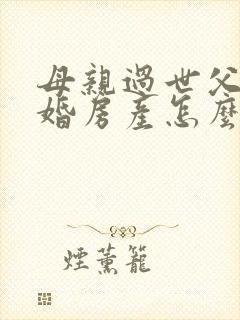 母親過世父
婚房產怎麼
煙薰籠